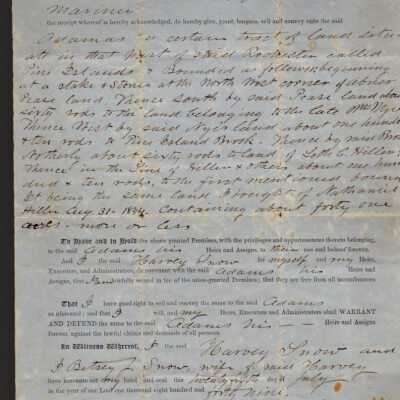 Mariner
the receipt whereof is hereby acknowledged, do hereby give, grant, bargain, sell and convey unto the said
Adams a certain tract of land situ
ate in that West of said Rochester called
Pine Islands & Bounded as follows, beginning
at a stake & Stones at the North West corner of Abner
Pease land, Thence South by said Pease land about
sixty rods to the land belonging to the late Wm Nye
Thence West by said Nyes land about one hund
& ten rods to Pine Island Brook. Thence by said Brook
Northerly about sixty rods to land of Seth C. Hiller
Thence in the line of Hiller & others about one hun
dred & ten rods, to the first mentioned bound
& being the same land I bought of Nathaniel
Hiller Aug. 31. Containing about forty one
acres. more or less
To Have and to Hold the above granted Premises, with the privileges and appurtenances thereto belonging,
to the said Adams his Heirs and Assigns, to their use and behoof forever.
And I the said Harvey Snow for myself and my Heirs,
Executors, and Administrators, do covenant with the said Adams his Heirs and
Assigns, that I am lawfully seized in fee of the afore-granted Premises; that they are free from all incumbrances
That I have good right to sell and convey the same to the said Adams
as aforesaid; and that I will and my Heirs, Executors and Administrators shall WARRANT
AND DEFEND the same to the said Adams his Heirs and Assigns
forever against the lawful claims and demands of all persons.
In Witness Whereof, I the said Harvey Snow and
I Betsey Snow, wife of said Harvey
have hereunto set my hand and seal this twenty day of July
in the year of our Lord one thousand eight hundred and forty nine.